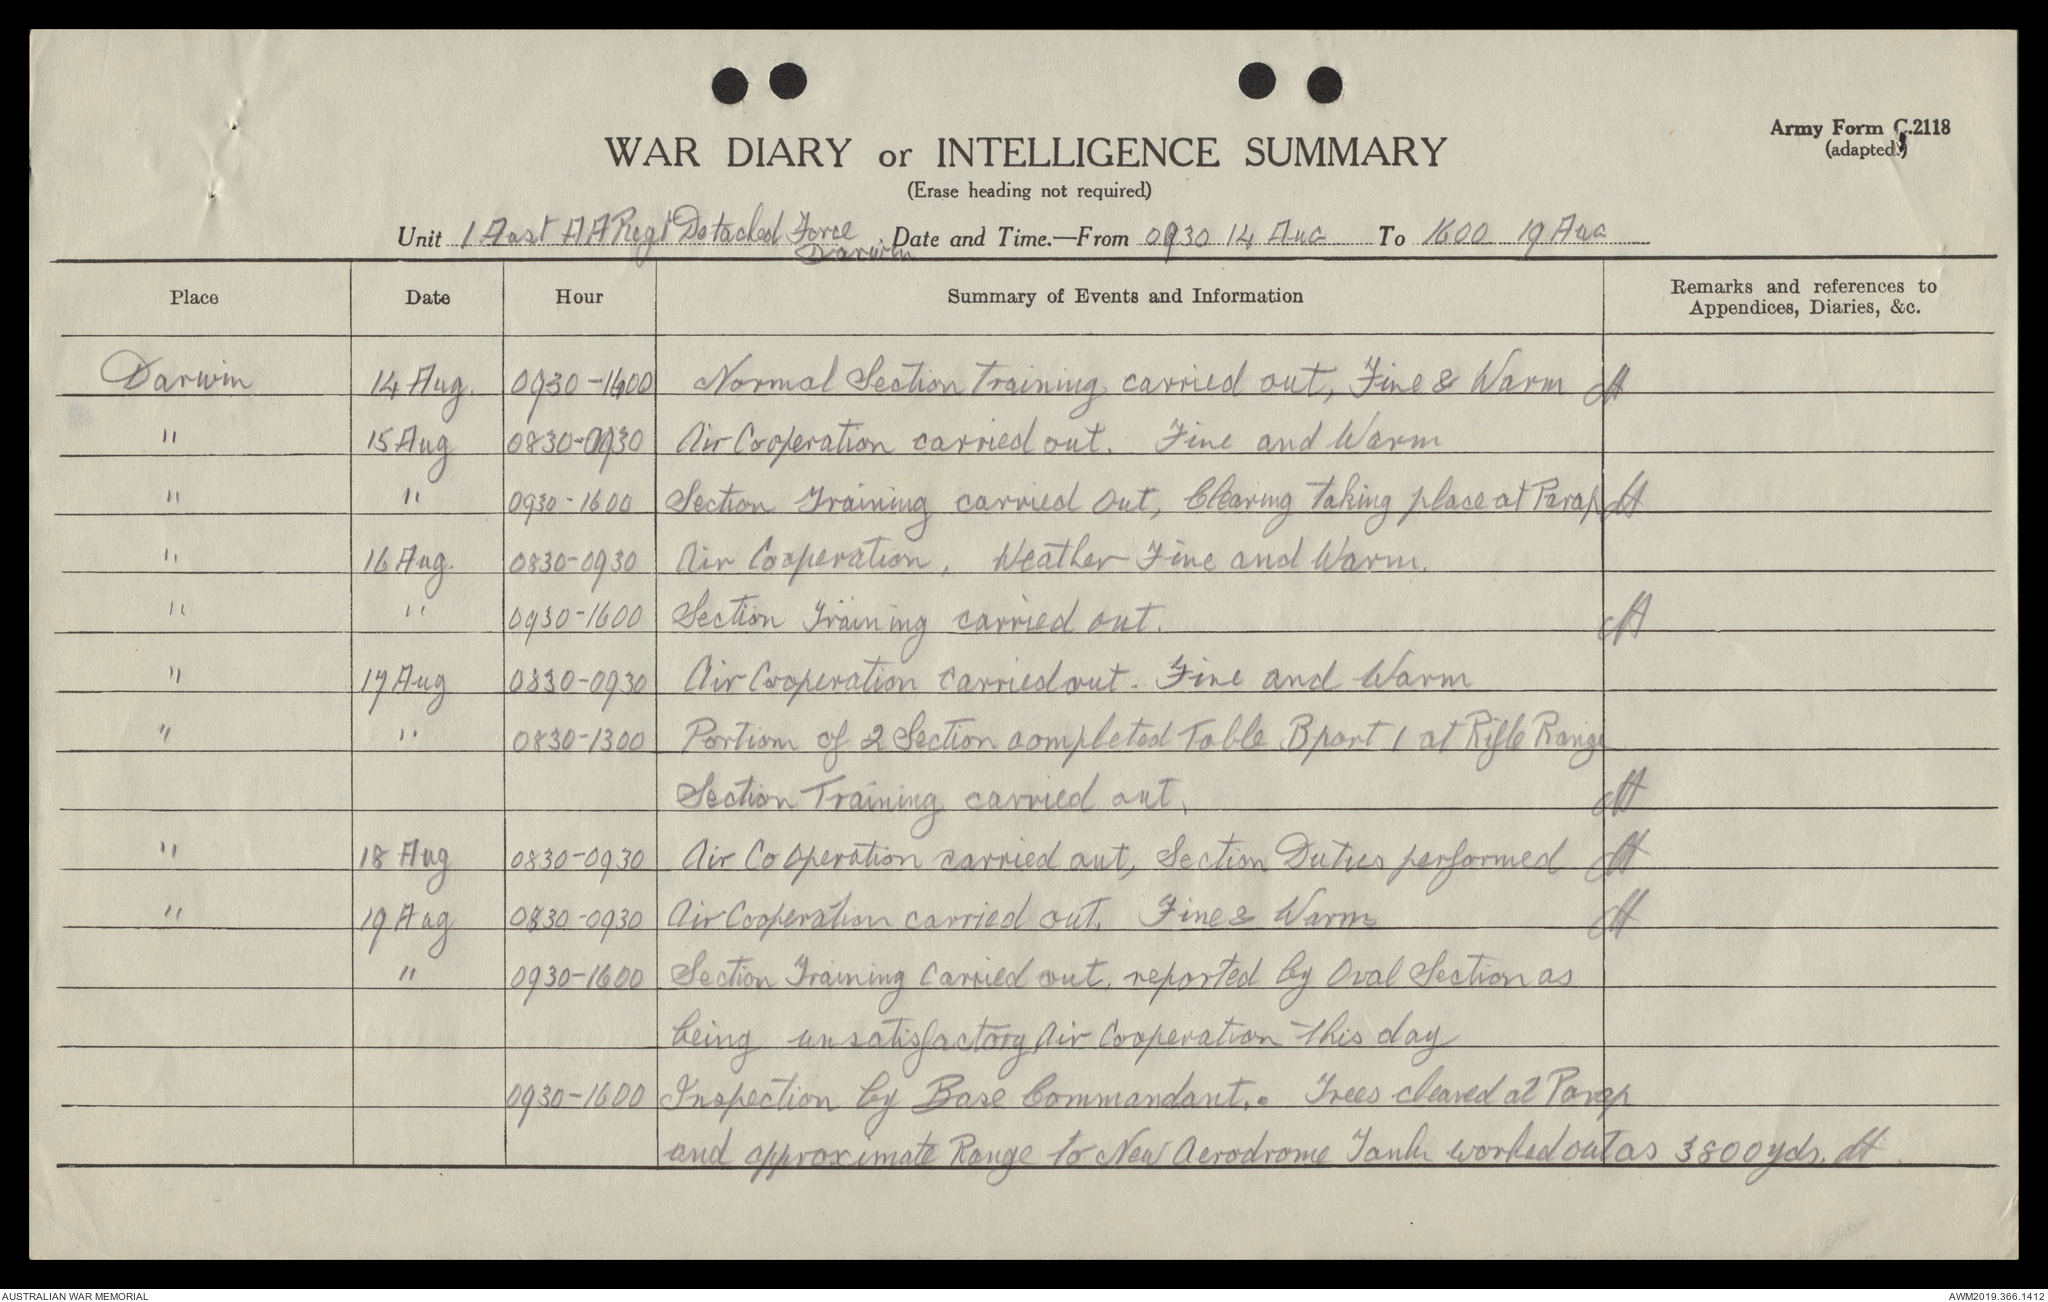 Army Form C.2118
(adapted.)
WAR DIARY or INTELLIGENCE SUMMARY
(Erase heading not required)
Unit 1 Aast AA Regt Detached Force Darwin Date and Time.—From 0930 14 Aug To 1600 19 Aug
Place Date Hour Summary of Events and Information Remarks and references to Appendices, Diaries, &c.
Darwin 14 Aug. 0930-1600 Normal Section Training carried out, Fine & Warm
" 15 Aug 0830-0930 Air Cooperation carried out. Fine and Warm
" " 0930-1600 Section Training carried out, Clearing taking place at Parap
" 16 Aug. 0830-0930 Air Cooperation, Weather Fine and Warm.
" " 0930-1600 Section Training carried out.
" 17 Aug 0830-0930 Air Cooperation carried out. Fine and Warm
" " 0830-1300 Portion of 2 Section completed Table B part 1 at Rifle Range
Section Training carried out.
" 18 Aug 0830-0930 Air Cooperation carried out, Section Duties performed
" 19 Aug 0830-0930 Air Cooperation carried out. Fine & Warm
" 0930-1600 Section Training carried out, reported by Oval Section as
being unsatisfactory Air Cooperation this day
0930-1600 Inspection by Base Commandant. Trees cleared at Parap
and approximate Range to New Aerodrome Tank worked out as 3800 yds.
AUSTRALIAN WAR MEMORIAL
AWM2019.366.1412